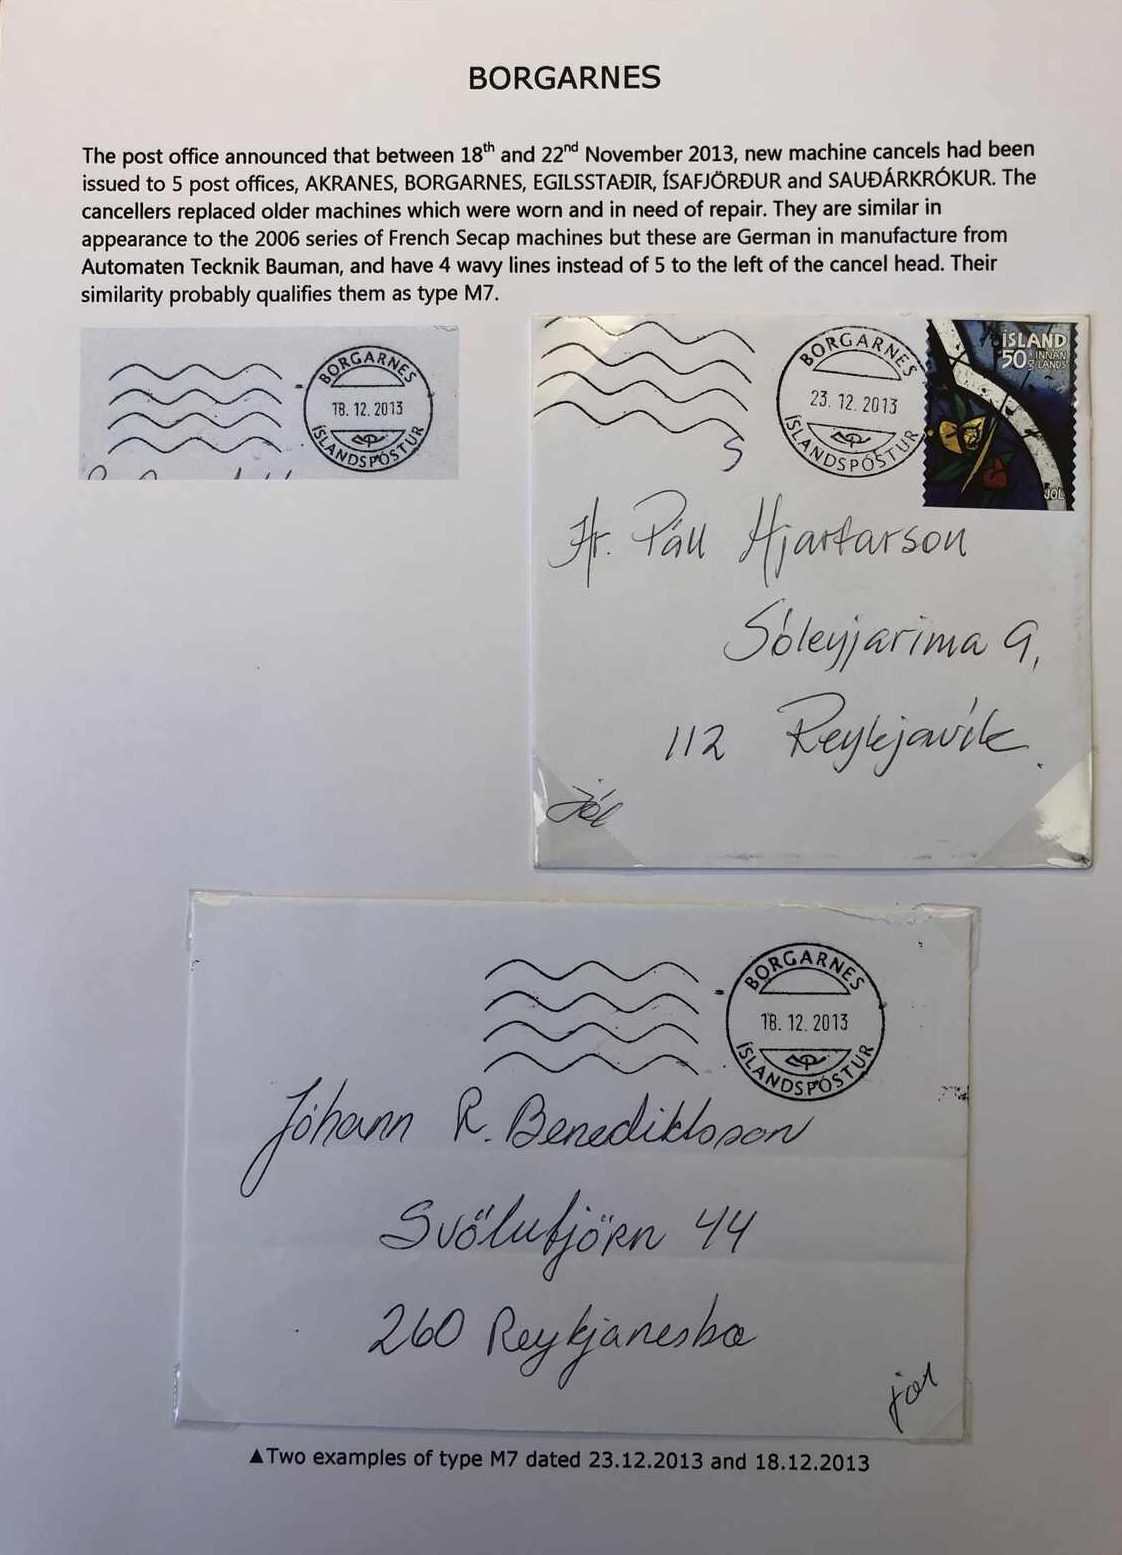 BORGARNES
The post office announced that between 18th and 22nd November 2013, new machine cancels had been
issued to 5 post offices, AKRANES, BORGARNES, EGILSSTAÐIR, ÍSAFJÖRÐUR and SAUÐÁRKRÓKUR. The
cancellers replaced older machines which were worn and in need of repair. They are similar in
appearance to the 2006 series of French Secap machines but these are German in manufacture from
Automaten Tecknik Bauman, and have 4 wavy lines instead of 5 to the left of the cancel head. Their
similarity probably qualifies them as type M7.
BORGARNES
18. 12. 2013
ÍSLANDSPÓSTUR
BORGARNES
23. 12. 2013
ÍSLANDSPÓSTUR
ÍSLAND
50g INNAN
LANDS
JÓL
Hr. Páll Hjartarson
Sóleyjarima 9,
112 Reykjavík.
Jól
BORGARNES
18. 12. 2013
ÍSLANDSPÓSTUR
Jóhann R. Benediktsson
Svölutjörn 44
260 Reykjanesbæ
jól
▲Two examples of type M7 dated 23.12.2013 and 18.12.2013